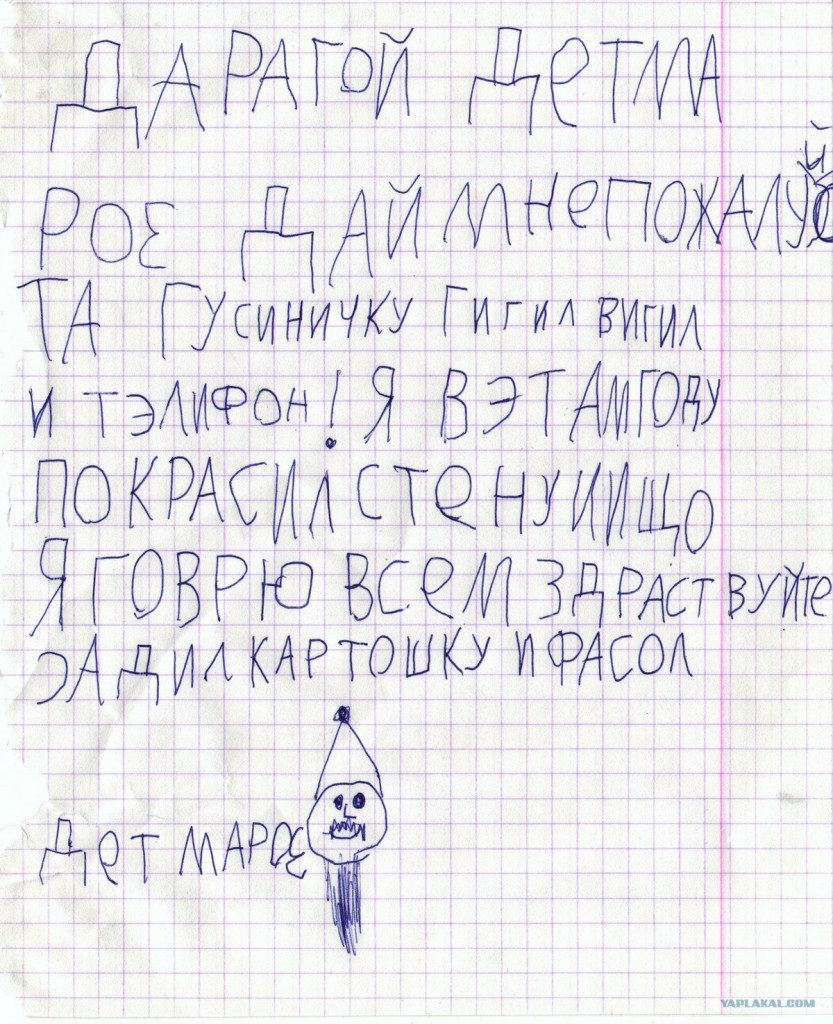 ДАРАГОЙ ДЕТМА
РОЗ ДАЙ МНЕПОЖАЛУЙ
ТА ГУСИНИЧКУ ГИГИЛ ВИГИЛ
И ТЭЛИФОН! Я ВЭТАМГОДУ
ПОКРАСИЛСТЕНУИИЩО
ЯГОВРЮ ВСЕМ ЗДРАСТВУЙТЕ
ЭАДИЛ КАРТОШКУ ИФАСОЛ
ДЕТ МАРОЗ
YAPLAKAL.COM